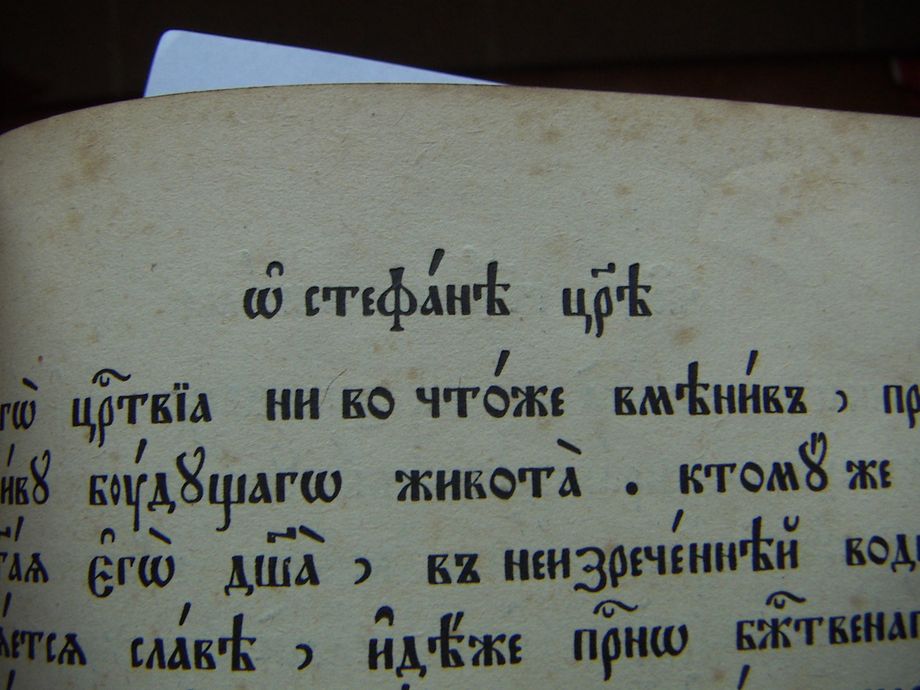 ѡ҆ стефа́нѣ цр҃ѣ
гѡ̀ црⷭ҇твїѧ ни во что́же вмѣни́въ ,
и́вꙋ бꙋ́дꙋщагѡ живота̀ . ктомꙋ̀ же
є҆гѡ̀ дш҃а̀ , въ неизрече́ннѣй
ѧетсѧ сла́вѣ , и҆дѣ́же прⷭ҇нѡ бжⷭ҇твенаг